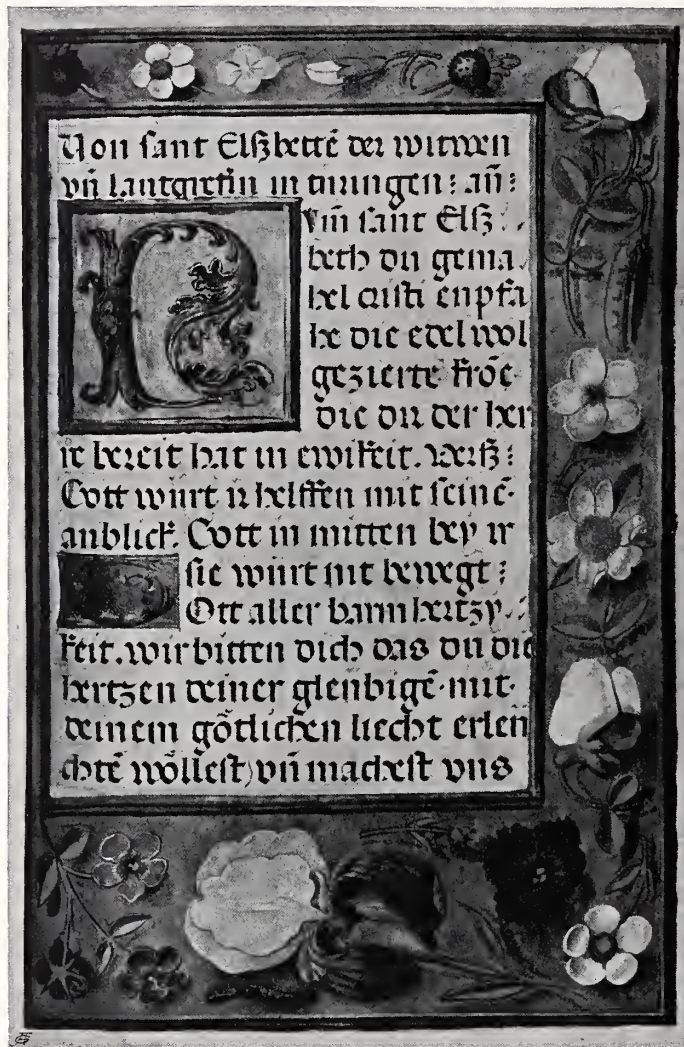 Von sant Elßbettē der witwen
vñ lantgrefin in túringen : añ :
Nim sant Elß
beth du gema
hel cristi enpfa
he die edel wol
gezierte krōe
die dir der her
re bereit hat in ewikeit. Verß :
Gott würt ir helffen mit seinē
anblick. Gott in mitten bey ir
sie würt nit bewegt :
Gott aller barmhertzy
keit. wir bitten dich das du die
hertzen deiner gleubigē mit
deinem götlichen liecht erleu
chtē wöllest) vñ machest vns